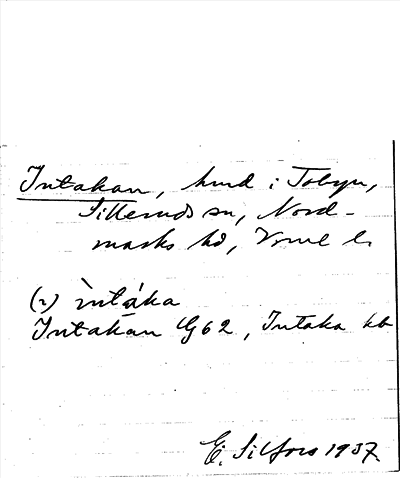 Intakan, hmd i Tobyn,
Silleruds sn, Nord-
marks hd, Vrml l.
(2) ìntáka
Intakan G62, Intaka kb
E. Silfors 1937